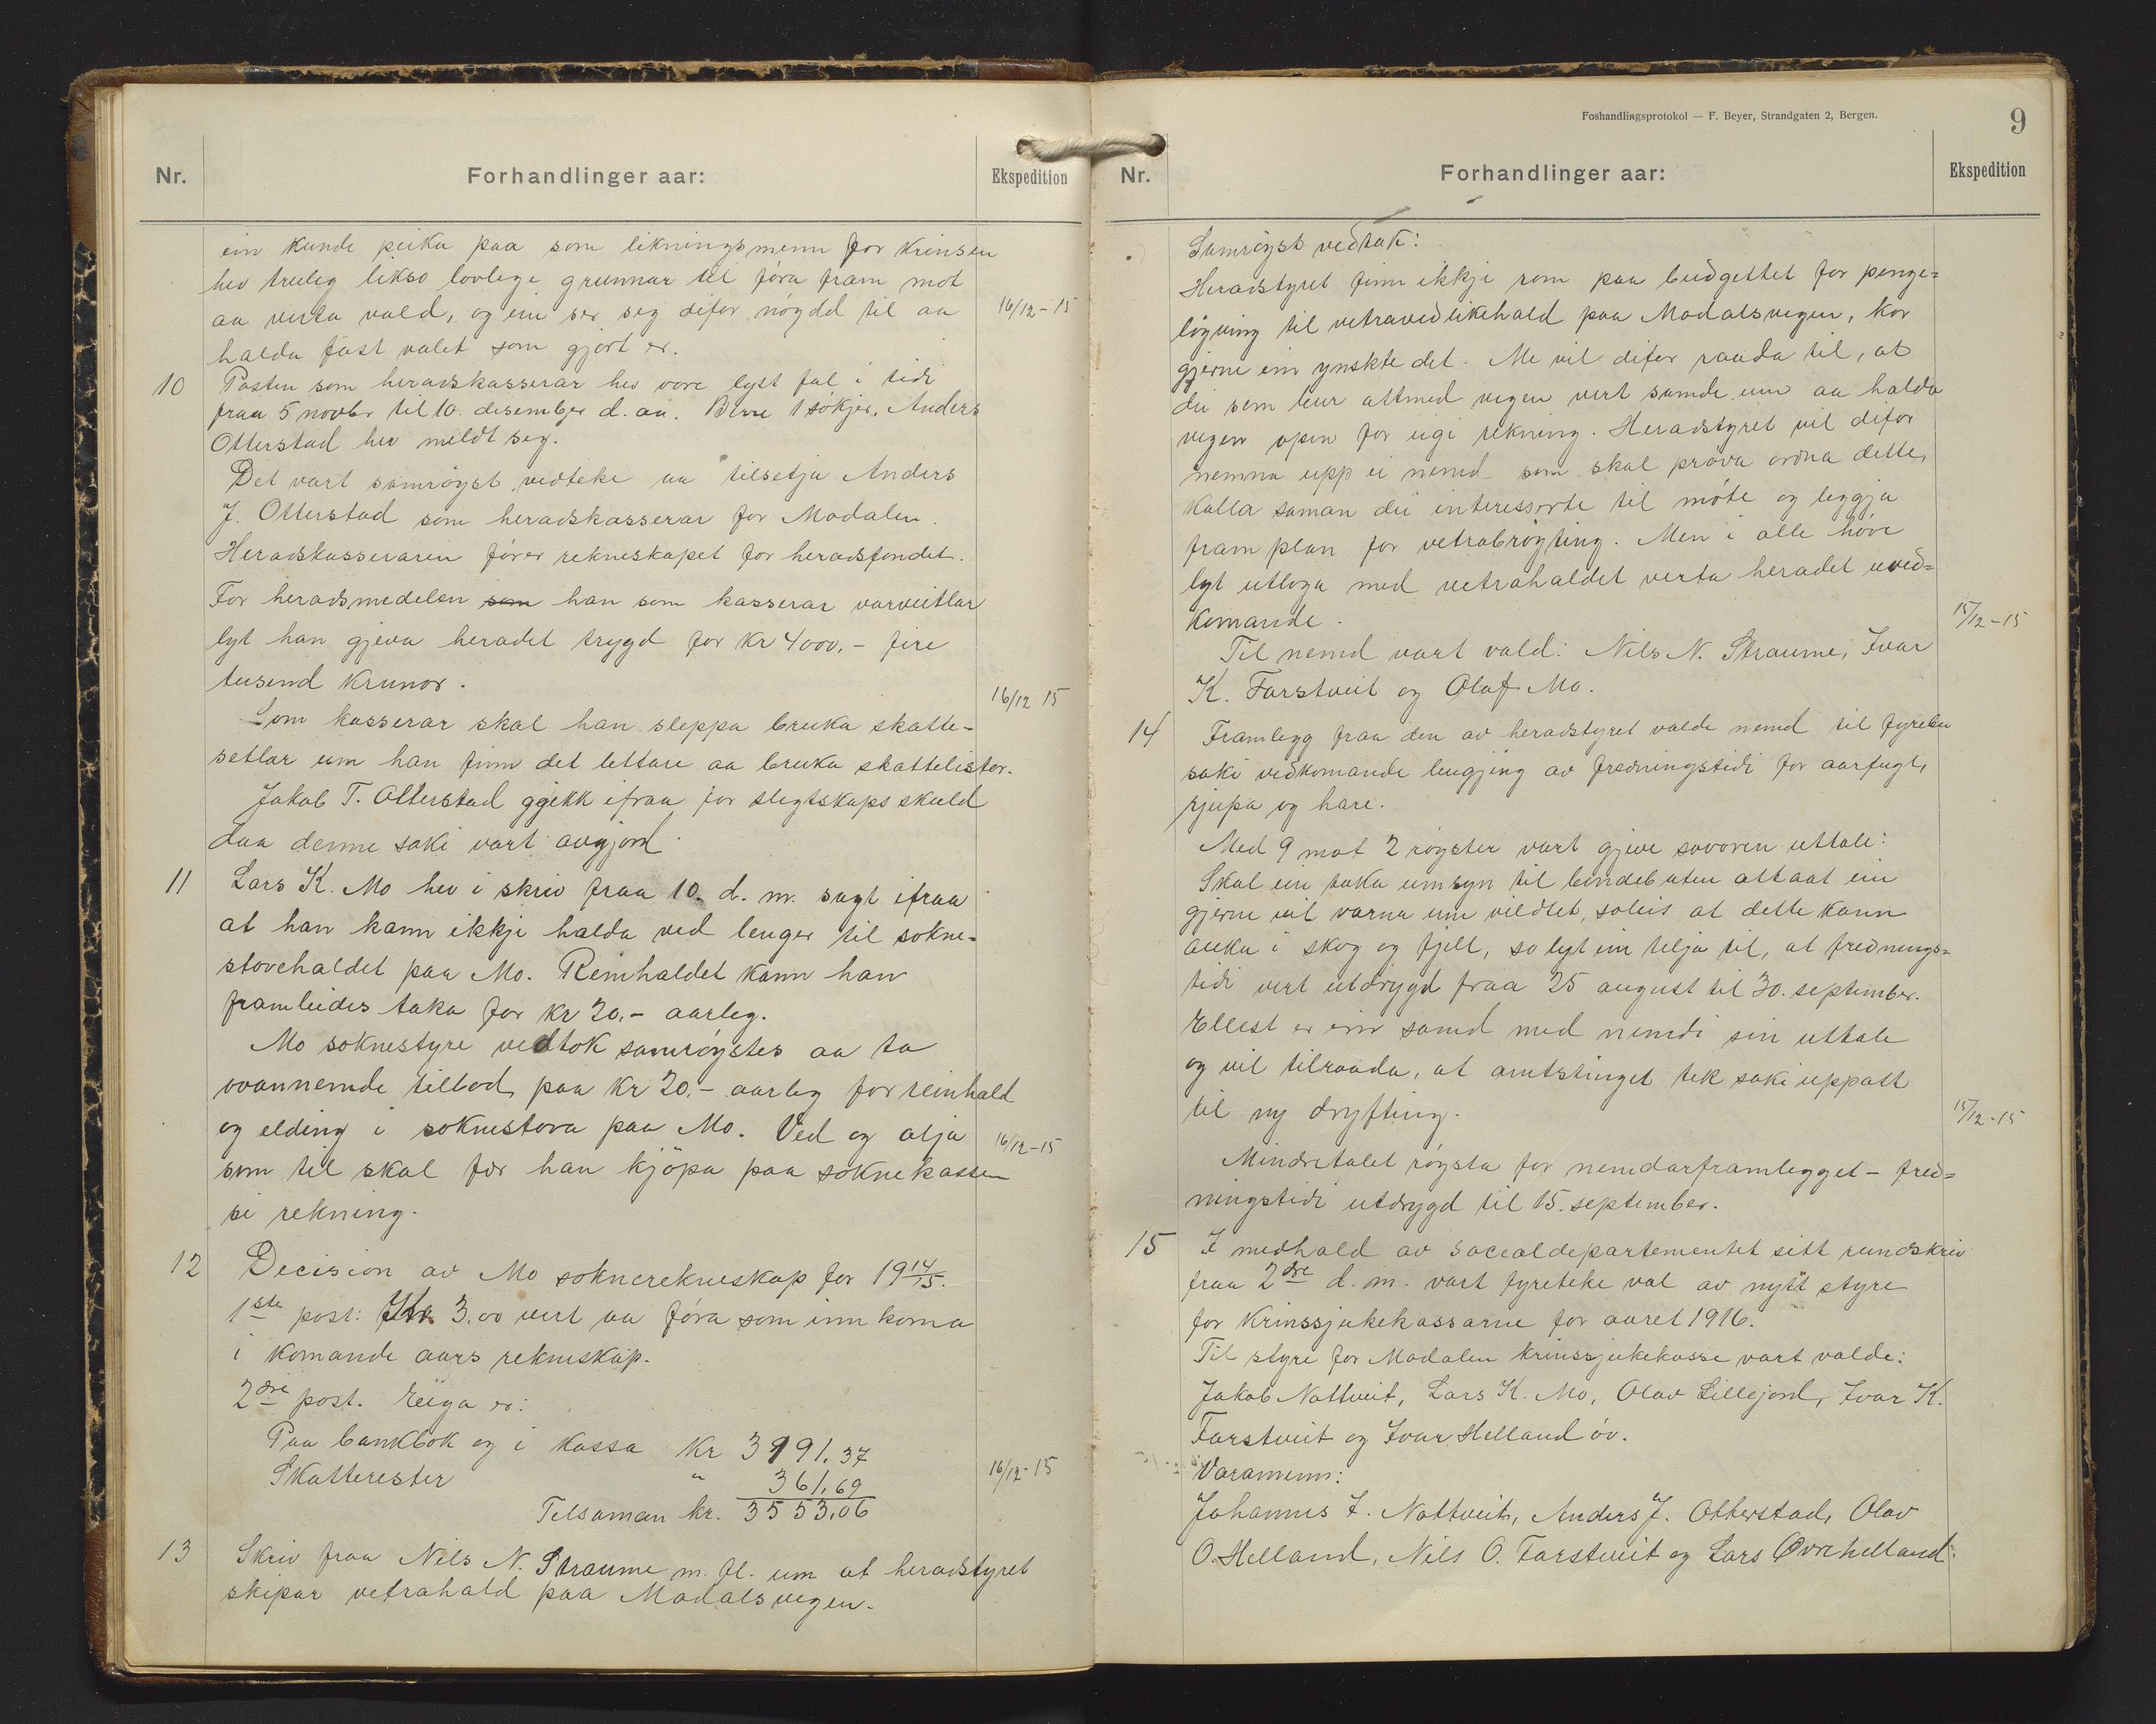 Nr.
Forhandlinger aar:
Ekspedition
ein kunde peika paa som likningsmenn for krinsen
hev truleg likso lovlege grunnar til föra fram mot
aa verta vald, og ein ser seg difor nögdd til aa
16/12-15
halda fast valet som gjort er.
10 Posten som heradskasserar hev vore lyst fal i tidi
fraa 5 novbr til 10. desember d. aa. Berre 1 sökjer, Anders
Otterstad hev meldt seg.
Det vart samröyst vedteke aa tilsetja Anders
J. Otterstad som heradskasserar for Modalen.
Heradskasseraren förer rekneskapet for heradsfondet.
For heradsmedelen som han som kasserar varveitlar
lyt han gjeva heradet trygd for kr 4000,- fire
tusend krunor.
16/12 15
Som kasserar skal han sleppa bruka skatte-
setlar um han finn det lettare aa bruka skattelistor.
Jakob T. Otterstad ggjekk ifraa for slegtskaps skuld
daa denne saki vart avgjord.
11 Lars K. Mo hev i skriv fraa 10. d. m. sagt ifraa
at han kann ikkje halda ved lenger til sokne-
stovehaldet paa Mo. Reinhaldet kann han
framleides taka for kr 20,- aarleg.
Mo soknestyre vedtok samröystes aa ta
ovannemde tilbod paa kr 20,- aarleg for reinhald
og elding i soknestova paa Mo. Ved og olja
16/12-15
som til skal fær han kjöpa paa soknekassen
si rekning.
12 Decision av Mo soknerekneskap for 19 14/15.
1ste post: Kr. 3.00 vert aa föra som inn koma
i komande aars rekneskap.
2dre post. Eiga er:
Paa bankbok og i kassa kr 3191,37
Skatterester " 361,69
16/12-15
Tilsaman kr. 3553,06
13 Skriv fraa Nils N. Straume m. fl. um at heradstyret
skipar vetrahald paa Modalsvegen.
Foshandlingsprotokol — F. Beyer, Strandgaten 2, Bergen.
9
Nr.
Forhandlinger aar:
Ekspedition
Samröyst vedtak:
Heradstyret finn ikkje rom paa budgettet for penge-
löyving til vetravedlikehald paa Modalsvegen, kor
gjerne ein ynskte det. Me vil difor raada til, at
dei som bur attmed vegen vert samde um aa halda
vegen open for eigi rekning. Heradstyret vil difor
nemna upp ei nemd som skal pröva ordna dette,
kalla saman dei interesserte til möte og leggja
fram plan for vetrabröyting. Men i alle höve
lyt utloga med vetrahaldet verta heradet uved-
komande.
15/12-15
Til nemd vart vald: Nils N. Straume, Ivar
K. Farstveit og Olaf Mo.
14 Framlegg fraa den av heradstyret valde nemd til fyrebu
saki vedkomande lengjing av fredningstidi for aarfugl,
rjupa og hare.
Med 9 mot 2 röyster vart gjeve sovoren uttale:
Skal ein taka umsyn til beindebaten attaat ein
gjerne vil varna um vildtet, soleis at dette kann
auka i skog og fjell, so lyt ein telja til, at frednings-
tidi vert utdrygd fraa 25 august til 30. september.
Ellest er ein samd med nemdi sin uttale
og vil tilraada, at amtstinget tek saki uppatt
til ny dryfting.
15/12-15
Mindretalet röysta for nemdarframlegget - fred-
ningstidi utdrygd til 15. september.
15 I medhald av socialdepartementet sitt rundskriv
fraa 2dre d. m. vart fyreteke val av nytt styre
for krinssjukekassarne for aaret 1916.
Til styre for Modalen krinssjukekasse vart valde:
Jakob Nottveit, Lars K. Mo, Olav Lillejord, Ivar K.
Farstveit og Ivar Helland öv.
Varamenn:
Johannes I. Nottveit, Anders J. Otterstad, Olav
O. Helland, Nils O. Farstveit og Lars Øvrehelland.